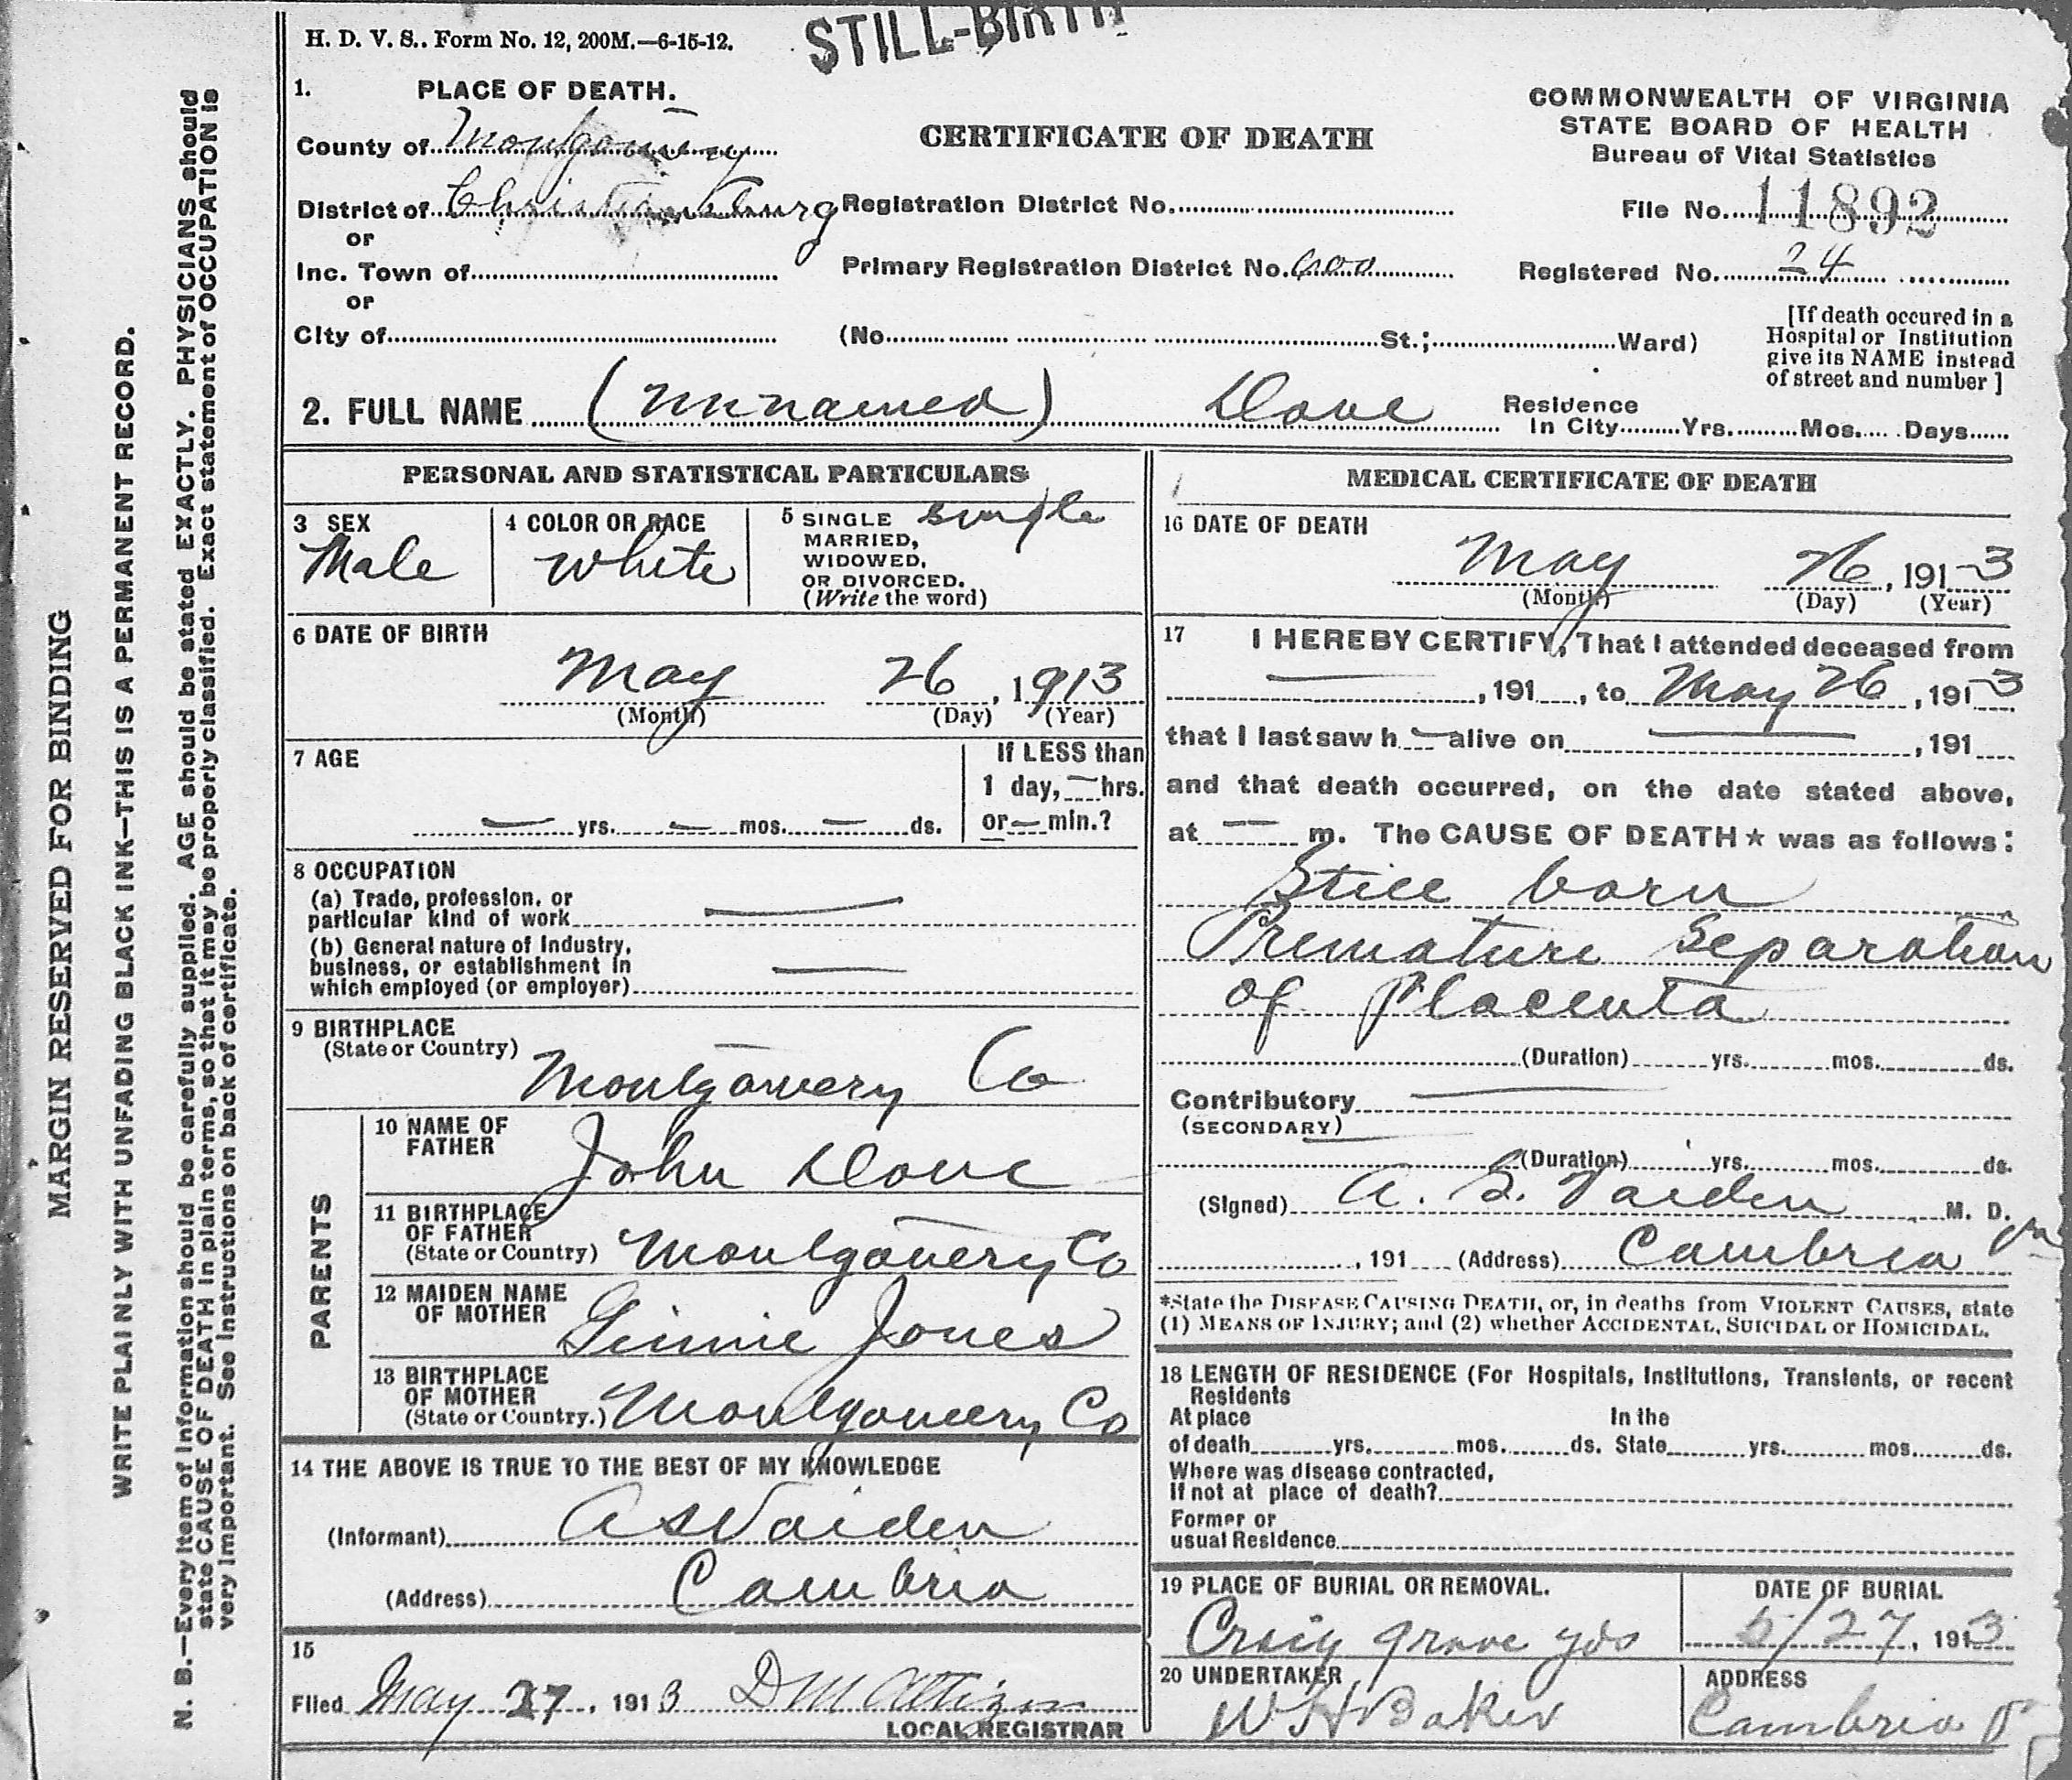 STILL-BIRTH
H. D. V. S.. Form No. 12, 200M.—6-15-12.
1. PLACE OF DEATH.
COMMONWEALTH OF VIRGINIA
STATE BOARD OF HEALTH
Bureau of Vital Statistics
CERTIFICATE OF DEATH
County of Montgomery
District of Christiansburg Registration District No. File No. 11892
or
Inc. Town of Primary Registration District No. 600 Registered No. 24
or
City of (No. St.; Ward)
[If death occured in a
Hospital or Institution
give its NAME instead
of street and number ]
2. FULL NAME (Unnamed) Dove
Residence
In City Yrs. Mos. Days
PERSONAL AND STATISTICAL PARTICULARS
3 SEX
Male
4 COLOR OR RACE
White
5 SINGLE
MARRIED,
WIDOWED,
OR DIVORCED.
(Write the word)
Single
6 DATE OF BIRTH
May 26, 1913
(Month) (Day) (Year)
7 AGE
— yrs. — mos. — ds.
If LESS than
1 day, — hrs.
or — min.?
8 OCCUPATION
(a) Trade, profession, or
particular kind of work —
(b) General nature of Industry,
business, or establishment in
which employed (or employer) —
9 BIRTHPLACE
(State or Country)
Montgomery Co
PARENTS
10 NAME OF
FATHER
John Dove
11 BIRTHPLACE
OF FATHER
(State or Country) Montgomery Co
12 MAIDEN NAME
OF MOTHER
Ginnie Jones
13 BIRTHPLACE
OF MOTHER
(State or Country.) Montgomery Co
14 THE ABOVE IS TRUE TO THE BEST OF MY KNOWLEDGE
(Informant) A S Vaiden
(Address) Cambria
15
Filed May 27, 1913 D M Altizer
LOCAL REGISTRAR
MEDICAL CERTIFICATE OF DEATH
16 DATE OF DEATH
May 26, 1913
(Month) (Day) (Year)
17 I HEREBY CERTIFY, That I attended deceased from
—, 191 , to May 26, 1913
that I last saw h — alive on —, 191
and that death occurred, on the date stated above,
at — m. The CAUSE OF DEATH * was as follows:
Still born
Premature Separation
of Placenta
(Duration) yrs. mos. ds.
Contributory —
(SECONDARY)
(Duration) yrs. mos. ds.
(Signed) A. S. Vaiden M. D.
, 191 (Address) Cambria Va
*State the DISEASE CAUSING DEATH, or, in deaths from VIOLENT CAUSES, state
(1) MEANS OF INJURY; and (2) whether ACCIDENTAL, SUICIDAL or HOMICIDAL.
18 LENGTH OF RESIDENCE (For Hospitals, Institutions, Transients, or recent
Residents
At place In the
of death yrs. mos. ds. State yrs. mos. ds.
Where was disease contracted,
If not at place of death?
Former or
usual Residence
19 PLACE OF BURIAL OR REMOVAL.
Craig grave yds
DATE OF BURIAL
5/27, 1913
20 UNDERTAKER
W H Baker
ADDRESS
Cambria
MARGIN RESERVED FOR BINDING
WRITE PLAINLY WITH UNFADING BLACK INK—THIS IS A PERMANENT RECORD.
N. B.—Every item of Information should be carefully supplied. AGE should be stated EXACTLY. PHYSICIANS should
state CAUSE OF DEATH in plain terms, so that it may be properly classified. Exact statement of OCCUPATION is
very important. See instructions on back of certificate.